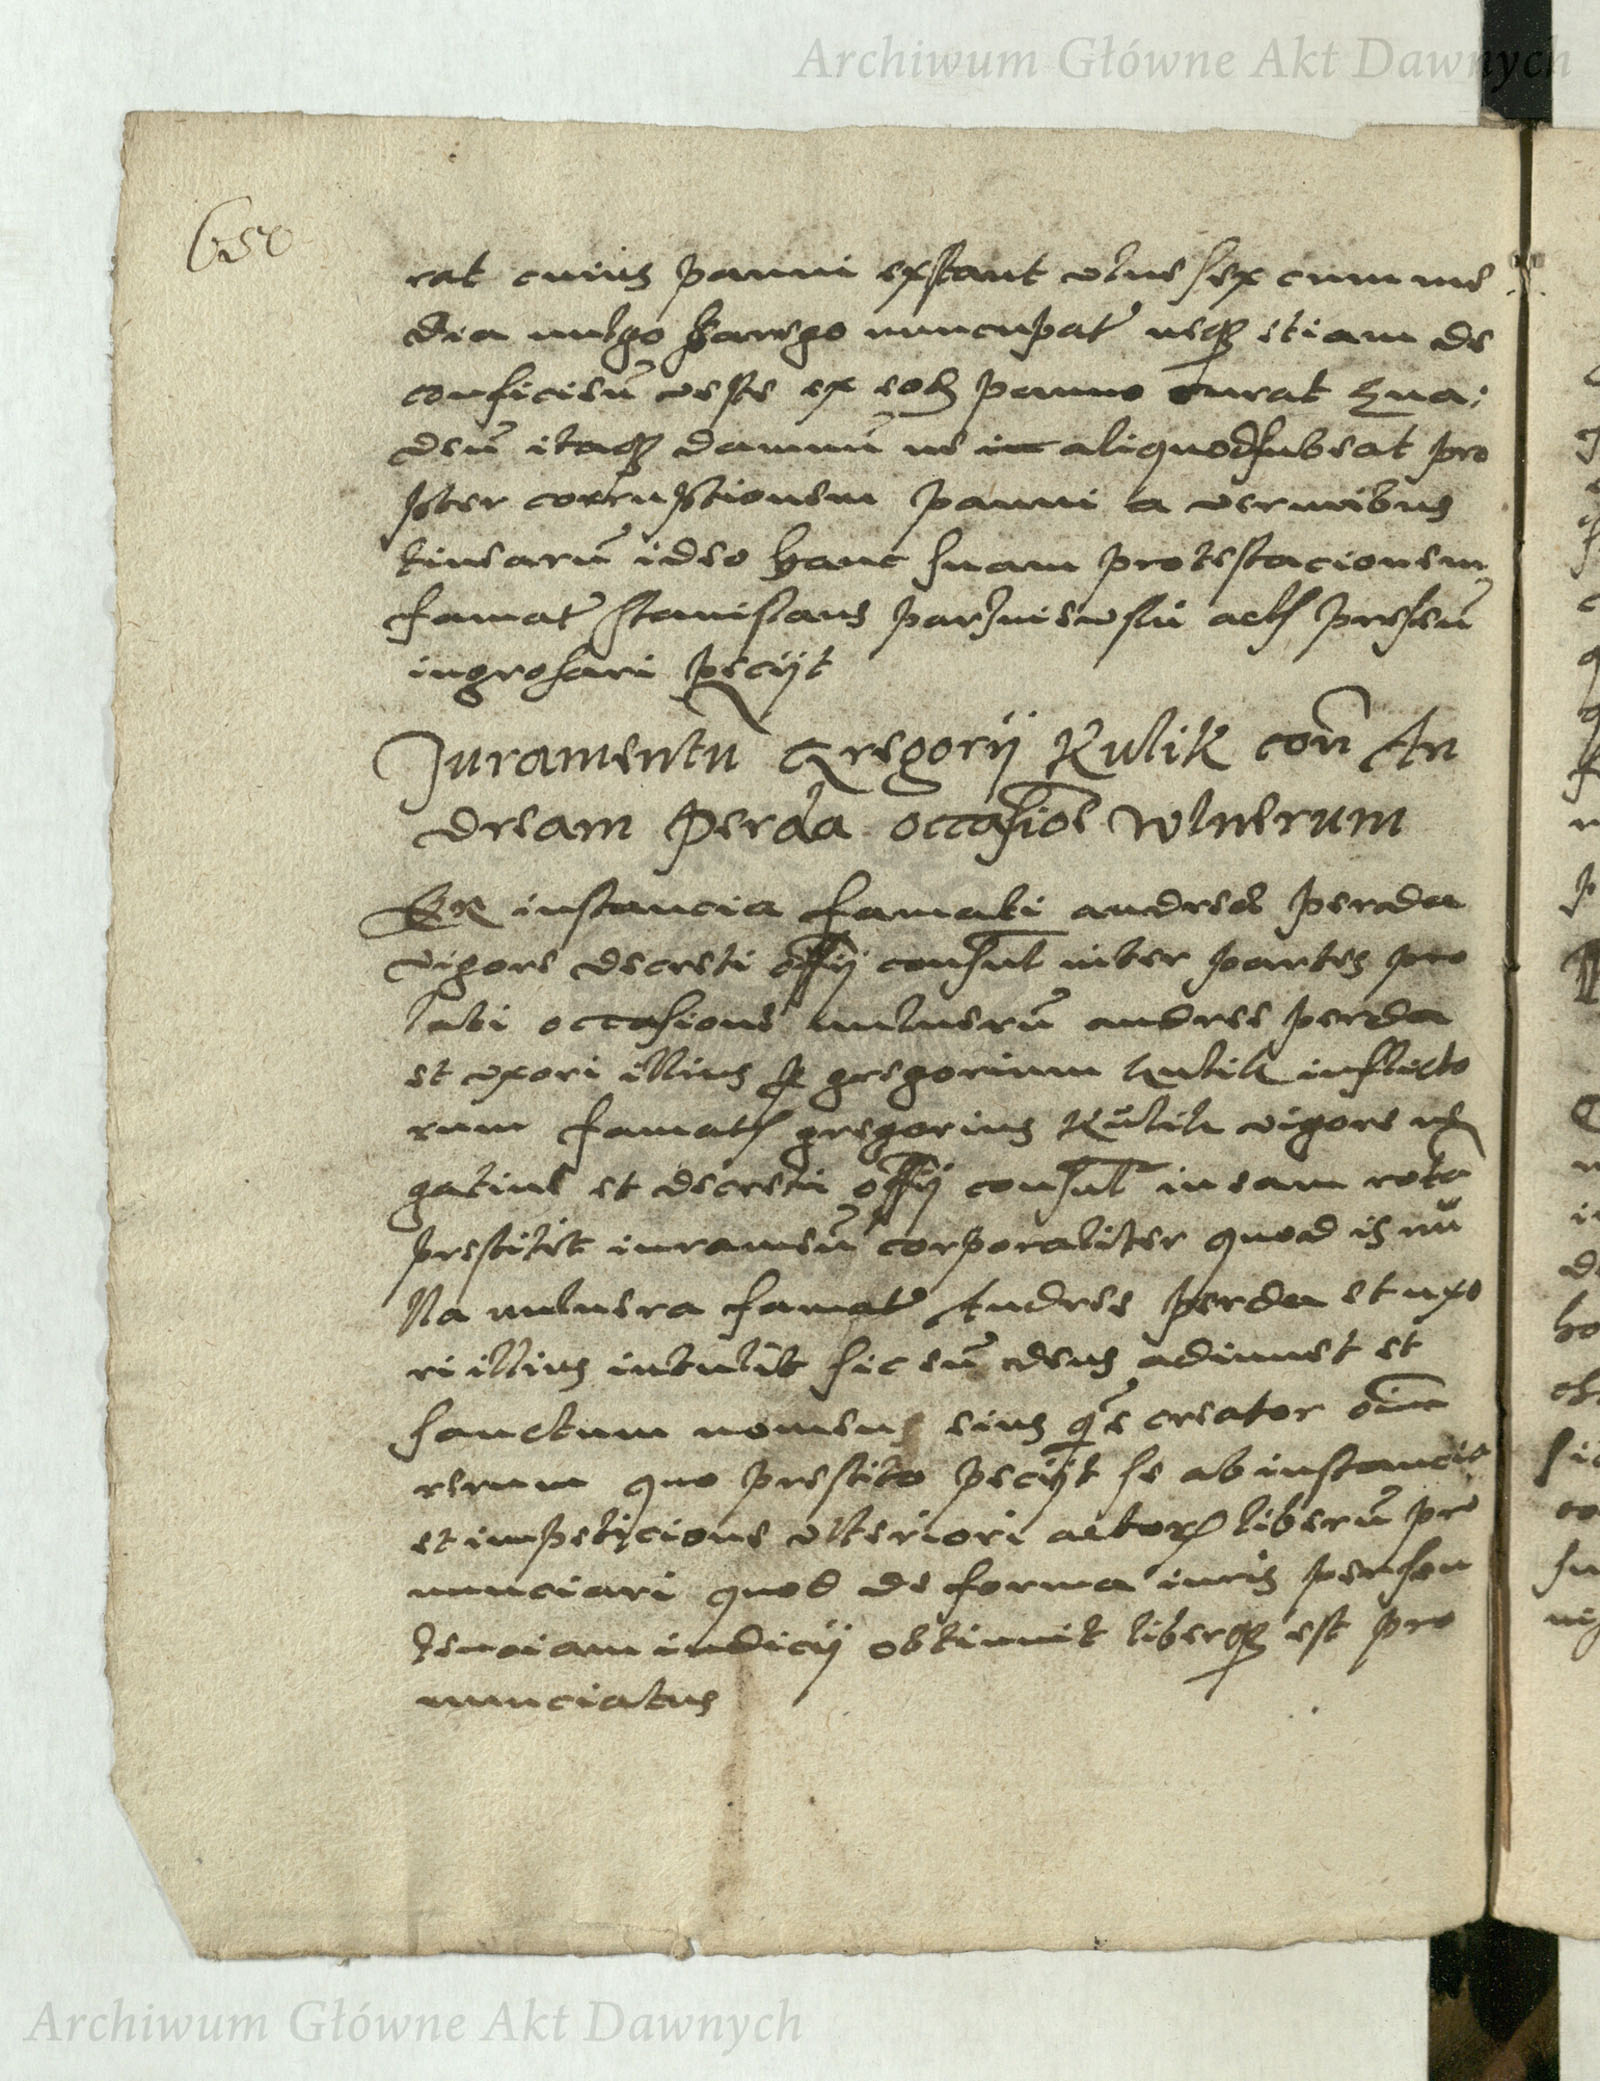 Archiwum Główne Akt Dawnych
650
rat cuius panni extant ulne sex cum me
dia vulgo nuncupat neq etiam de
conficien veste ex eod panno curat
itaq damnu ne in aliquod subeat pro
pter corruptionem panni a vermibus
tinearu ideo hanc suam protestacionem
famat Stanislaus act presen
ingrosari peciit
Juramentu Gregorij Kulik con An
dream Perda occasioe wlnerum
Ex instancia famati andree perda
vigore decreti offij consul inter partes pro
lati occasione vulneru andree perda
et uxori illius p gregorium kulik inflicto
rum famat gregorius Kulik vigore ne
gative et decreti offij consul in eam rota
prestitit iuramen corporaliter quod is nu
lla vulnera famat Andree perda et uxo
ri illius intulit sic eu deus adiuvet et
sanctum nomen eius qe creator oim
rerum quo prestito pecijt se ab instancia
et impeticione ulteriori actor liberu pro
nunciari quod de forma iuris per sen
tenciam iudicij obtinuit liberq est pro
nunciatus
Archiwum Główne Akt Dawnych